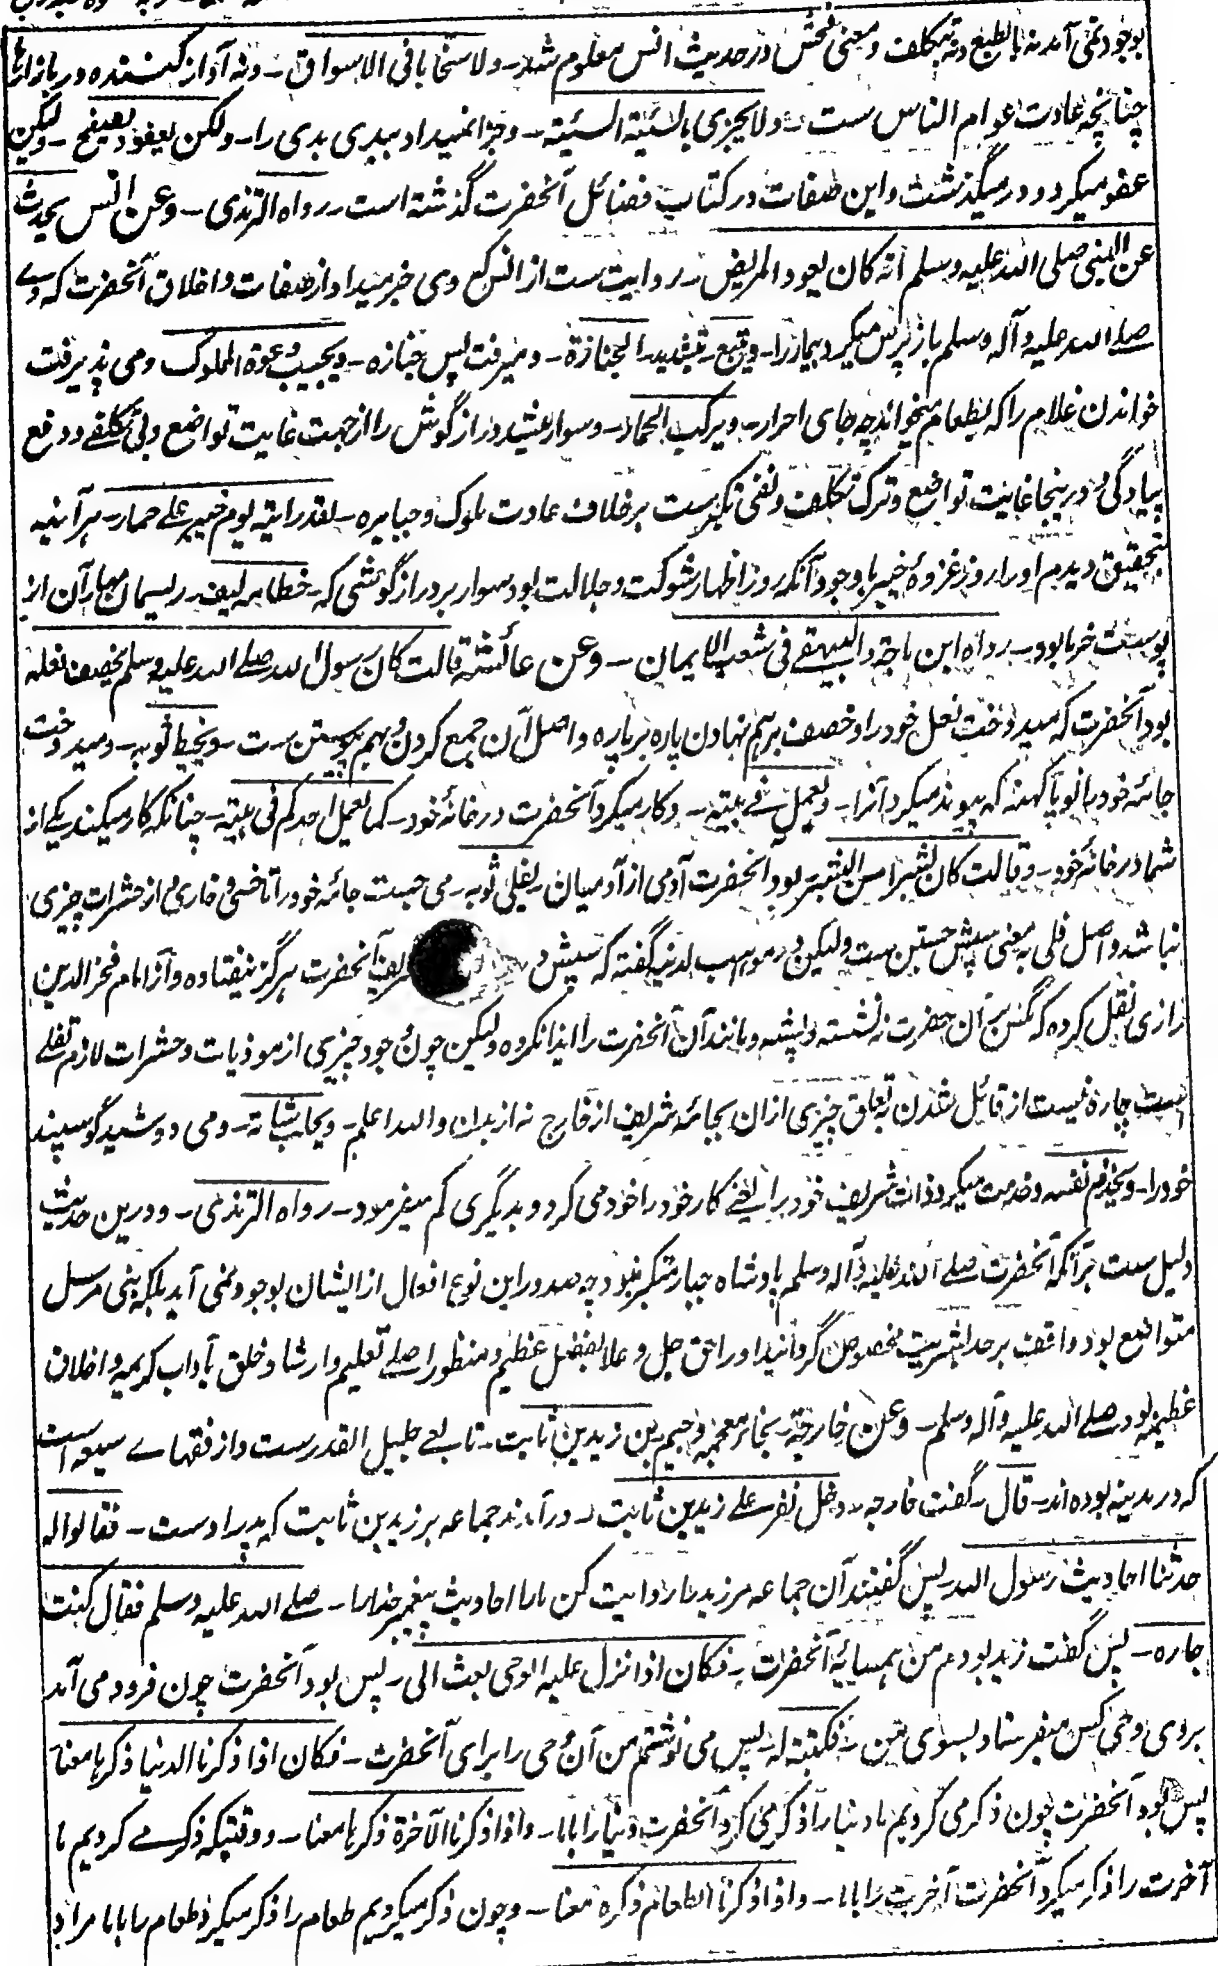 بوجود نمی آمد نه بالطبع و نه بتکلف و معنی فحش در حدیث انس معلوم شد ـ ولا سخابا فی الاسواق ـ و نه آواز کننده در بازارها
چنانچه عادت عوام الناس ست ـ ولا یجزی بالسیئة السیئة ـ و جزا نمیداد ببدی بدی را ـ ولکن یعفو و یصفح ـ ولیکن
عفو میکرد و در میگذشت و این صفات در کتاب فضائل آنحضرت گذشته است ـ رواه الترمذی ـ وعن انس یحدث
عن النبی صلی الله علیه وسلم انه کان یعود المریض ـ روایت ست از انس که وی خبر میداد از صفات و اخلاق آنحضرت که وے
صلے الله علیه وآله وسلم باز پرس میکرد بیمار را ـ ویتبع ـ بتشدید ـ الجنازة ـ و میرفت پس جنازه ـ ویجیب دعوة المملوک و می پذیرفت
خواندن غلام را که بطعام میخواند چه جای احرار ـ ویرکب الحمار ـ و سوار میشد دراز گوش را از جهت غایت تواضع و بی تکلفے و دفع
پیادگی و درینجا غایت تواضع و ترک تکلف و نفی تکبرست برخلاف عادت ملوک و جبابره ـ لقد رایته یوم خیبر علے حمار ـ هر آئینه
بتحقیق دیدم او را روز غزوۀ خیبر باوجود آنکه روز اظهار شوکت و جلالت بود سوار بر دراز گوشی که ـ خطامه لیف ـ ریسمان مهار آن از
پوست خرما بود ـ رواه ابن ماجة والبیهقے فی شعب الایمان ـ وعن عائشة قالت کان رسول الله صلے الله علیه وسلم یخصف نعله
بود آنحضرت که میدوخت نعل خود را و خصف برهم نهادن پاره بر پاره و اصل آن جمع کردن و بهم پیوستن ست ـ ویخیط ثوبه ـ و میدوخت
جامۀ خود یا نو یا کهنه که پیوند میکرد آنرا ـ ویعمل فے بیته ـ و کار میکرد آنحضرت در خانۀ خود ـ کما یعمل احدکم فی بیته ـ چنانکه کار میکند یکے از
شما در خانۀ خود ـ وقالت کان بشرا من البشر بود آنحضرت آدمی از آدمیان ـ یفلی ثوبه ـ می جست جامۀ خود را تا خسی و خاری و از حشرات چیزی
نباشد و اصل فلی به معنی سپش جستن ست ولیکن در مواهب لدنیه گفته که سپش د آنحضرت هرگز نیفتاده و از امام فخر الدین
رازی نقل کرده که مگس بر آن حضرت ننشسته و پشه و مانند آن آنحضرت را ایذا نکرده ولیکن چون وجود چیزی از موذیات و حشرات لازم تفلی
است چاره نیست از قائل شدن به تعلق چیزی ازان بجامۀ شریف از خارج نه از بدن والله اعلم ـ ویحلب شاته ـ و می دوشید گوسپند
خود را ـ ویخدم نفسه و خدمت میکرد ذات شریف خود را یعنے کار خود را خود می کرد و بدیگری کم میفرمود ـ رواه الترمذی ـ و درین حدیث
دلیل ست بر آنکه آنحضرت صلے الله علیه وآله وسلم پادشاه جبار متکبر نبود چه صدور این نوع افعال از ایشان بوجود نمی آید بلکه نبی مرسل
متواضع بود واقف بر حد بشریت مخصوص گردانید او را حق جل و علا بفضل عظیم و منظور اصلے تعلیم و ارشاد خلق بآداب کریمه و اخلاق
عظیمه بود صلے الله علیه وآله وسلم ـ وعن خارجة ـ بخاء معجمه و جیم ـ بن زید بن ثابت ـ تابعے جلیل القدرست و از فقهاے سبعه است
که در مدینه بوده اند ـ قال ـ گفت خارجه ـ دخل نفر علے زید بن ثابت ـ در آمدند جماعه بر زید بن ثابت که پدر اوست ـ فقالوا له
حدثنا احادیث رسول الله پس گفتند آن جماعه مر زید را روایت کن ما را احادیث پیغمبر خدا را ـ صلے الله علیه وسلم فقال کنت
جاره ـ پس گفت زید بودم من همسایۀ آنحضرت ـ فکان اذا نزل علیه الوحی بعث الی ـ پس بود آنحضرت چون فرود می آمد
بروی وحی کس میفرستاد بسوی من ـ فکتبته له ـ پس می نوشتم من آن وحی را برای آنحضرت ـ فکان اذا ذکرنا الدنیا ذکرها معنا
پس بود آنحضرت چون ذکر می کردیم ما دنیا را ذکر می کرد آنحضرت دنیا را با ما ـ واذا ذکرنا الآخرة ذکرها معنا ـ و وقتیکه ذکر مے کردیم ما
آخرت را ذکر میکرد آنحضرت آخرت را با ما ـ واذا ذکرنا الطعام ذکره معنا ـ و چون ذکر میکردیم طعام را ذکر میکرد طعام را با ما مراد